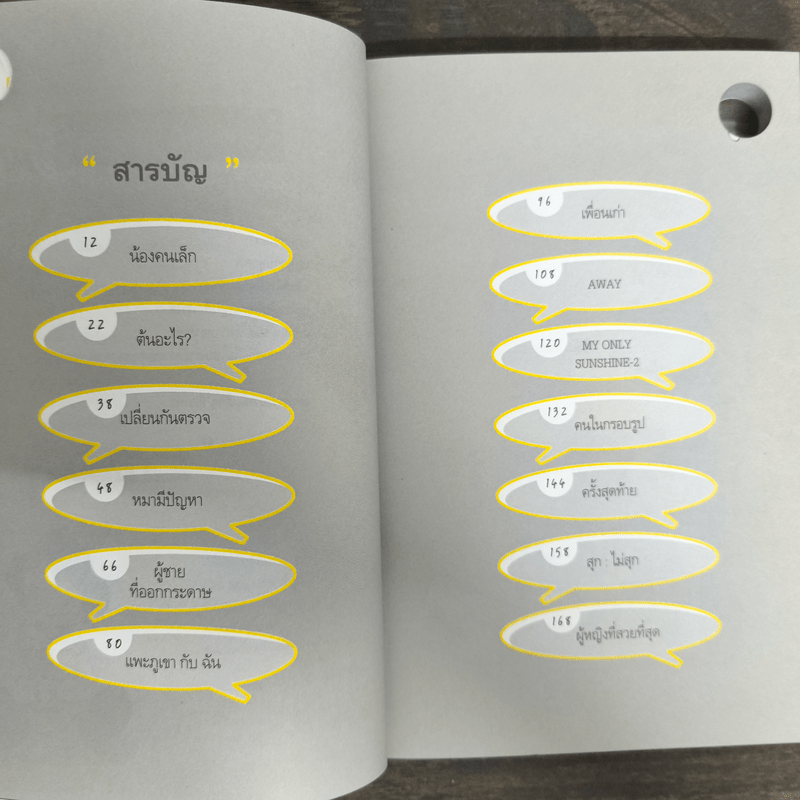 “ สารบัญ ”
12
น้องคนเล็ก
22
ต้นอะไร?
38
เปลี่ยนกันตรวจ
48
หมามีปัญหา
66
ผู้ชาย
ที่ออกกระดาษ
80
แพะภูเขา กับ ฉัน
96
เพื่อนเก่า
108
AWAY
120
MY ONLY
SUNSHINE-2
132
คนในกรอบรูป
144
ครั้งสุดท้าย
158
สุก : ไม่สุก
168
ผู้หญิงที่สวยที่สุด